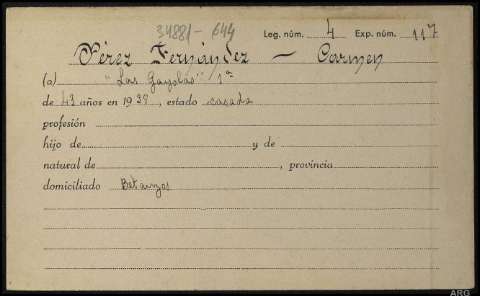 34881-644
Leg. núm. 4 Exp. núm. 117
Pérez Fernández - Carmen
(a) "Las Gayolas" 1ª
de 43 años en 1937, estado casada
profesión
hijo de y de
natural de , provincia
domiciliado Betanzos
ARG